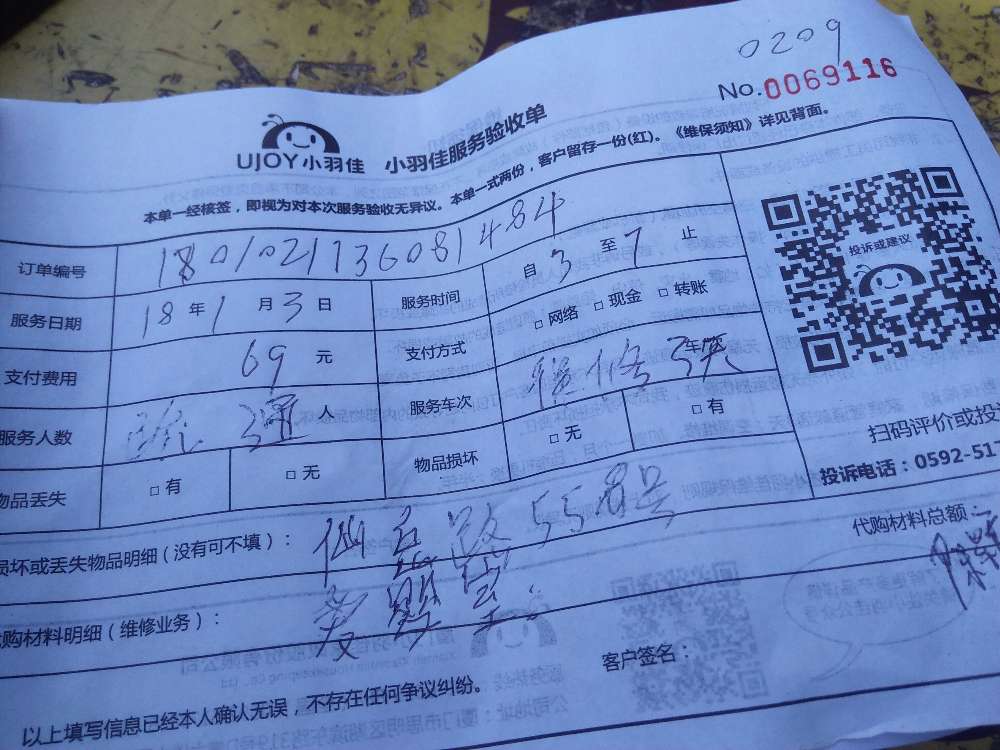 0209
No.0069116
UJOY小羽佳 小羽佳服务验收单
本单一经核签，即视为对本次服务验收无异议。本单一式两份，客户留存一份(红)。《维保须知》详见背面。
订单编号 1801021136081484
服务日期 18年1月3日 服务时间 自3至7止
支付费用 69元 支付方式 □网络 □现金 □转账
服务人数 疏通人 服务车次 保修3天车次
物品丢失 □有 □无 物品损坏 □无 □有
投诉或建议
扫码评价或投
投诉电话：0592-51
损坏或丢失物品明细（没有可不填）： 仙岳路558号
代购材料总额：
代购材料明细（维修业务）：
客户签名：
以上填写信息已经本人确认无误，不存在任何争议纠纷。